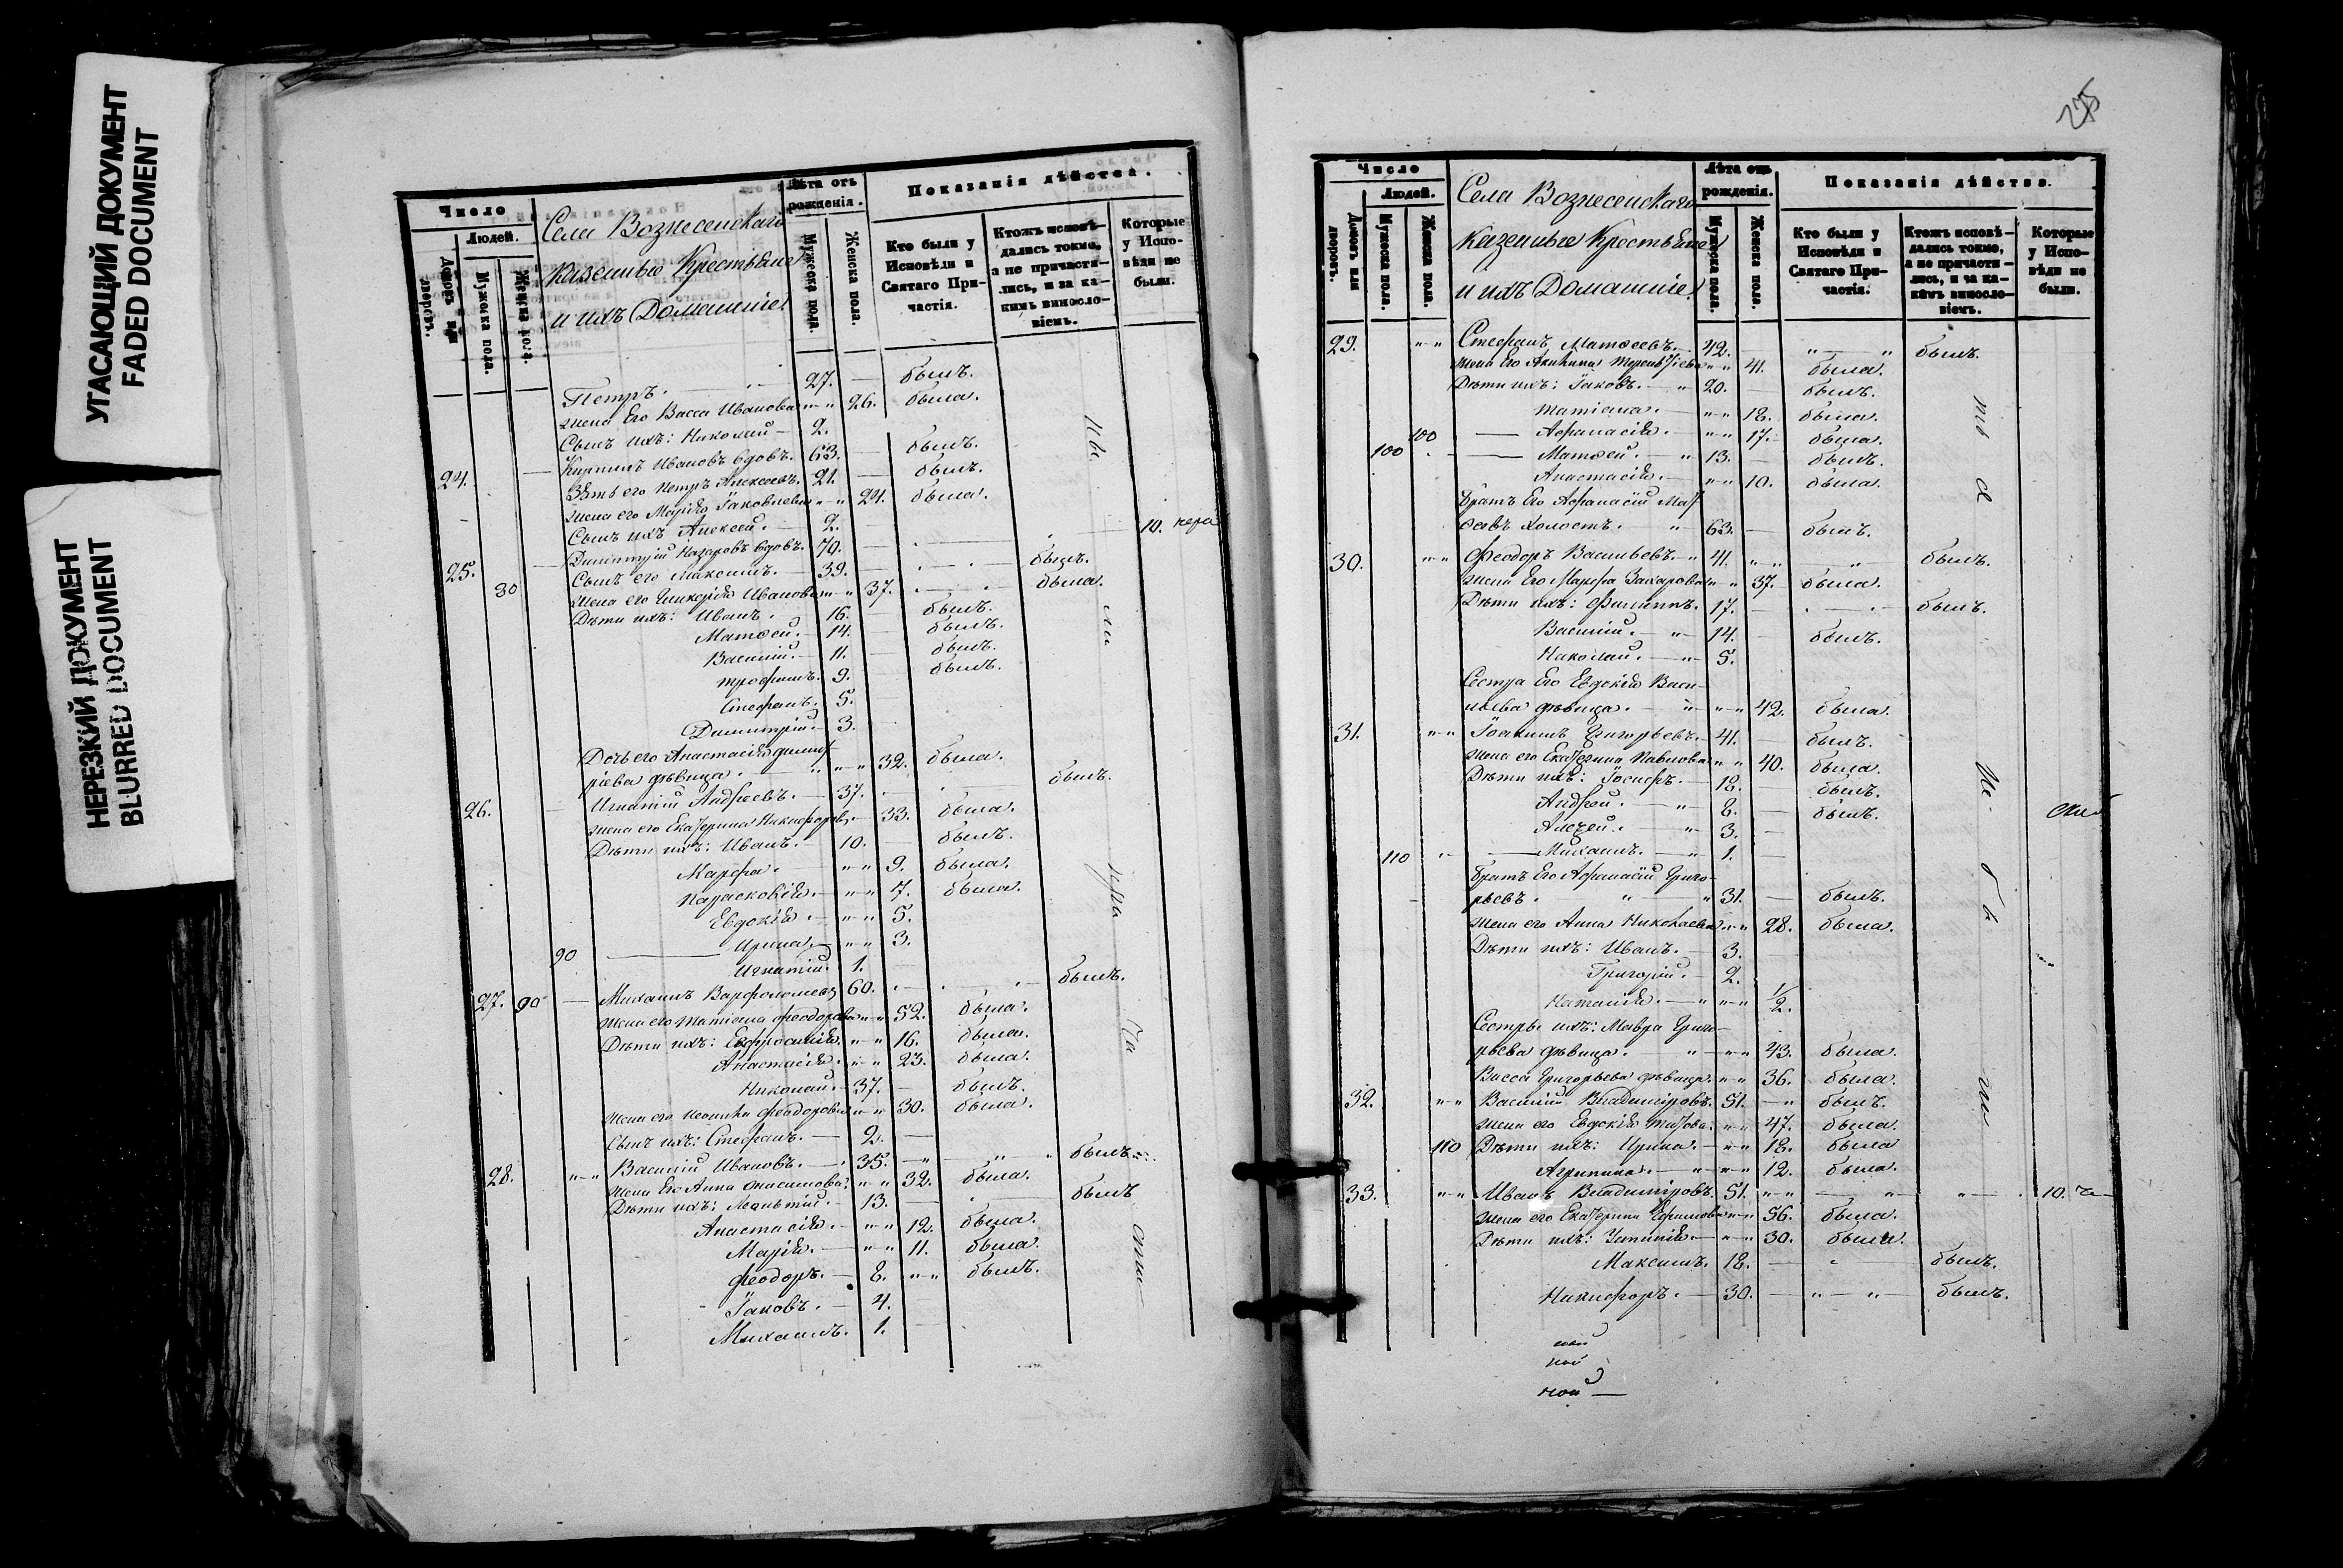 УГАСАЮЩИЙ ДОКУМЕНТ
FADED DOCUMENT
НЕРЕЗКИЙ ДОКУМЕНТ
BLURRED DOCUMENT
Число
Людей.
Домовъ или дворовъ.
Мужеска пола.
Женска пола.
Села Вознесенскаго
казенные Крестьяне
и ихъ Домашніе.
Лѣта отъ рожденія.
Мужеска пола.
Женска пола.
Показанія дѣйства.
Кто были у Исповѣди и Святаго Причастія.
Ктожъ исповѣдались токмо, а не причастились, и за какимъ винословіемъ.
Которые у Исповѣди не были.
Петръ. 27. былъ.
жена Его Васса Иванова 26. была.
Сынъ ихъ: Николай 2.
24. Кирилъ Ивановъ вдовъ. 63. былъ.
Зять его Петръ Алексеевъ. 21. былъ.
жена его Марія Іаковлева 24. была.
Сынъ ихъ Алексей. 2.
25. Димитрій Назаровъ вдовъ. 70. 10.
80 Сынъ его Максимъ. 39. былъ.
жена его Гликерія Иванова 37. была.
Дѣти ихъ: Иванъ. 16. былъ.
Матѳей. 14. былъ.
Василій. 11. былъ.
Трофимъ. 9. былъ.
Стефанъ. 5.
Димитрій. 3.
Дочь его Анастасія Димит
ріева дѣвица. 32. была.
26. Игнатій Андреевъ. 37. былъ.
жена его Екатерина Никифоров. 33. была.
Дѣти ихъ: Иванъ. 10. былъ.
Марфа. 9. была.
Парасковія. 7. была.
Евдокія. 5.
90 Ирина. 3.
Игнатій. 1.
27. 90 Михаилъ Варфоломеев 60. былъ.
жена его Татіана Феодорова 52. была.
Дѣти ихъ: Евфросинія. 16. была.
Анастасія. 23. была.
Николай. 37. былъ.
жена его Феодорова 30. была.
Сынъ ихъ: Стефанъ. 2.
28. Василій Ивановъ. 35. былъ.
жена Его Анна Анисимова. 32. была.
Дѣти ихъ: Леонтій. 13. былъ
Анастасія. 12. была.
Марія. 11. была.
Феодоръ. 8. былъ.
Іаковъ. 4.
Михаилъ. 1.
275
Число
Людей.
Домовъ или дворовъ.
Мужеска пола.
Женска пола.
Села Вознесенскаго
казенные Крестьяне
и ихъ Домашніе.
Лѣта отъ рожденія.
Мужеска пола.
Женска пола.
Показанія дѣйства.
Кто были у Исповѣди и Святаго Причастія.
Ктожъ исповѣдались токмо, а не причастились, и за какимъ винословіемъ.
Которые у Исповѣди не были.
29. Стефанъ Матѳеевъ. 42. былъ.
жена Его Акилина Терентіева 41. была.
Дѣти ихъ: Іаковъ. 20. былъ.
Татіана. 18. была.
100 Афанасія. 17. была.
100 Матѳей. 13. былъ.
Анастасія. 10. была.
братъ Его Афанасій Мат
ѳеевъ холостъ. 63. былъ.
30. Феодоръ Васильевъ. 41. былъ.
жена Его Марфа Захарова 37. была.
Дѣти ихъ: Филиппъ. 17. былъ.
Василій. 14. былъ.
Николай. 5.
Сестра Его Евдокія Васи-
льева дѣвица. 42. была.
31. Іоакимъ Григорьевъ. 41. былъ.
жена его Екатерина Павлова 40. была.
Дѣти ихъ: Іосифъ. 18. былъ.
Андрей. 8. былъ.
3.
110 Михаилъ. 1.
братъ Его Афанасій Григо-
рьевъ. 31. былъ.
жена его Анна Николаева 28. была.
Дѣти ихъ: Иванъ. 3.
Григорій. 2.
Наталія. 1/2.
Сестры ихъ: Мавра Григо-
рьева дѣвица. 43. была.
Васса Григорьева дѣвица. 36. была.
32. Василій Владиміровъ. 51. былъ.
жена его Евдокія Титова. 47. была.
110 Дѣти ихъ: Ирина. 18. была
Агрипина. 12. была.
33. Иванъ Владиміровъ. 51. 10.
жена его Екатерина Ефимова 56. была.
Дѣти ихъ: Устинія. 30. была.
Максимъ. 18. былъ.
Никифоръ. 30. былъ.